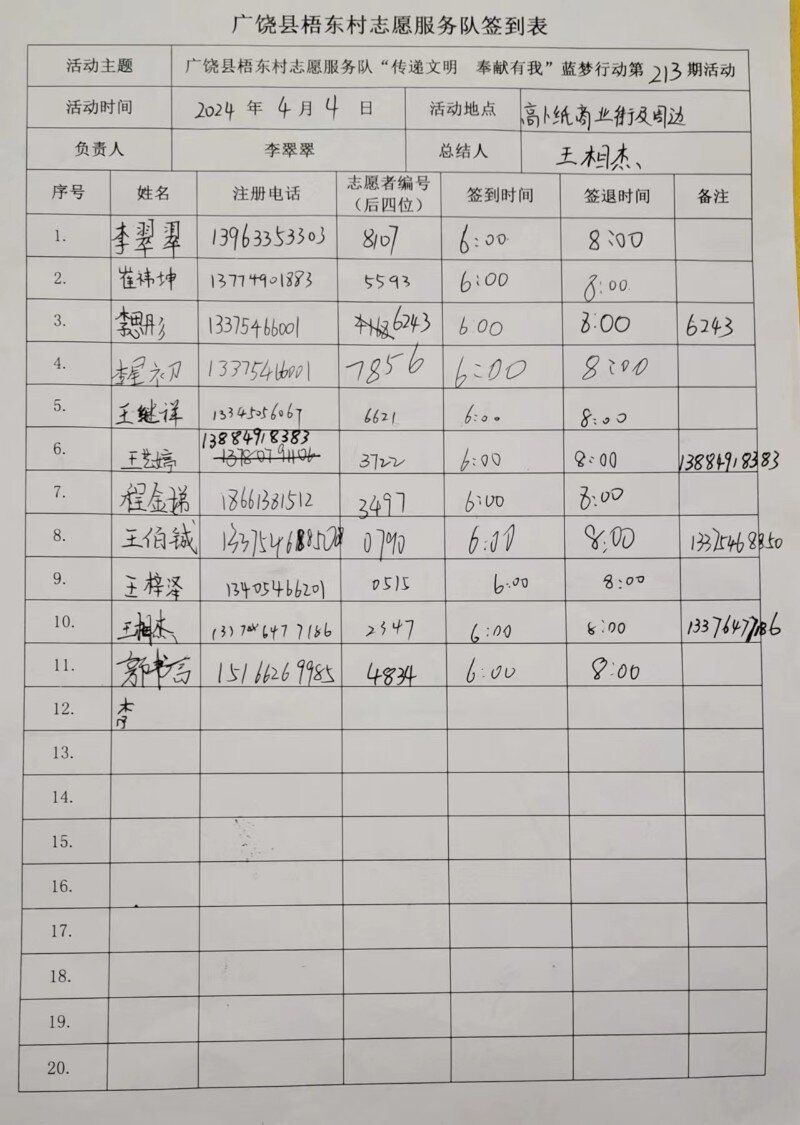 广饶县梧东村志愿服务队签到表
活动主题 广饶县梧东村志愿服务队“传递文明 奉献有我”蓝梦行动第213期活动
活动时间 2024年4月4日 活动地点 高卜纸商业街及周边
负责人 李翠翠 总结人 王相杰
序号 姓名 注册电话 志愿者编号（后四位） 签到时间 签退时间 备注
1. 李翠翠 13963353303 8107 6:00 8:00
2. 崔祎坤 13774901883 5593 6:00 8:00
3. 李思彤 13375466001 6243 6:00 8:00 6243
4. 李星初 13375466001 7856 6:00 8:00
5. 王继祥 13345056067 6621 6:00 8:00
6. 王艺婷 13884918383 3722 6:00 8:00 13884918383
7. 程金娣 18661381512 3497 6:00 8:00
8. 王伯钺 0790 6:00 8:00 13375468850
9. 王梓泽 13405466201 0515 6:00 8:00
10. 王相杰 2347 6:00 8:00
11. 郭书言 15166269985 4834 6:00 8:00
12. 李
13.
14.
15.
16.
17.
18.
19.
20.